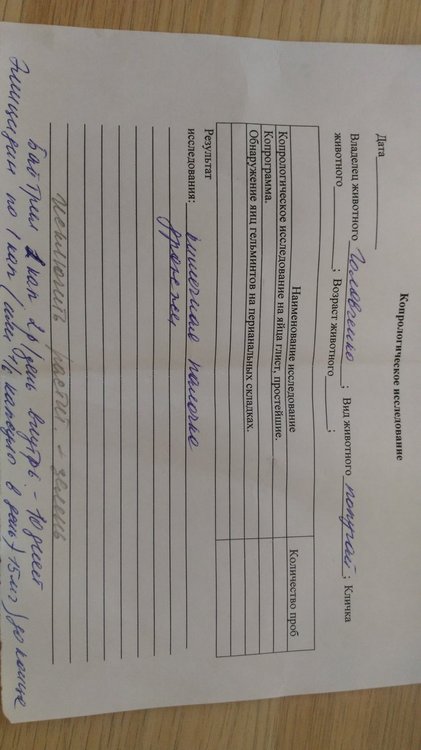 Копрологическое исследование
Дата
Владелец животного Головченко ; Вид животного попугай ; Кличка
животного ; Возраст животного ;
Наименование исследование Количество проб
Копрологическое исследование на яйца глист, простейшие.
Копрограмма.
Обнаружение яиц гельминтов на перианальных складках.
Результат
исследования: кишечная палочка
дрожжи
исключить растит. - зелень
Байтрил 2 кап 2р/день внутрь - 10 дней
по 1 кап / в день